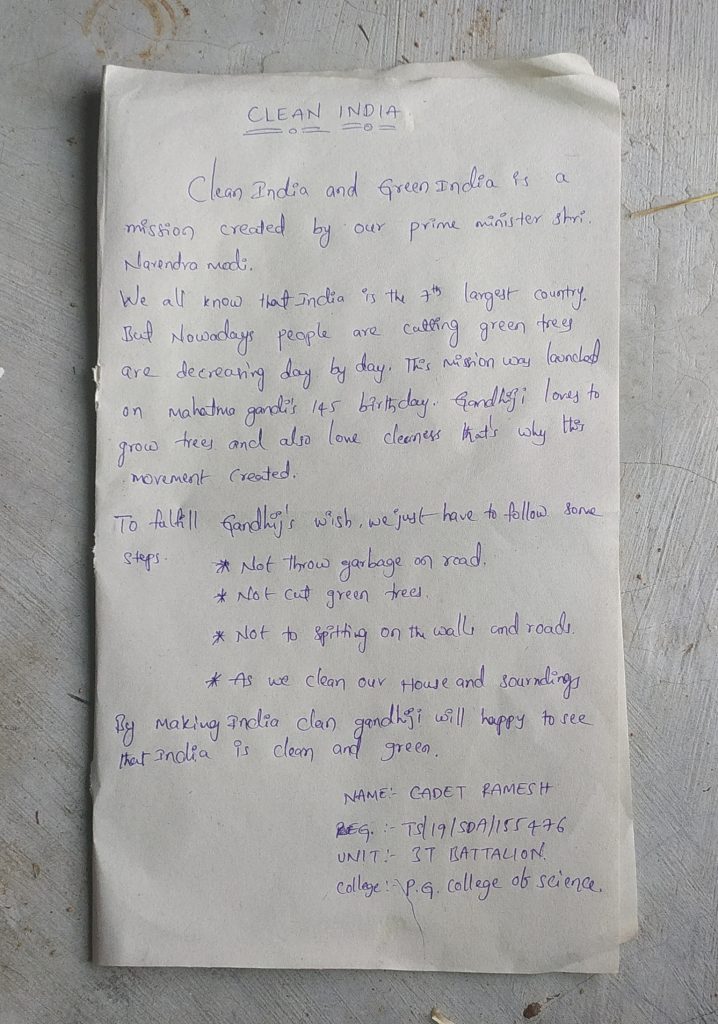 CLEAN INDIA
Clean India and Green India is a
mission created by our prime minister shri.
Narendra modi.
We all know that India is the 7th largest country.
But Nowadays people are cutting green trees
are decreasing day by day. This mission was launched
on mahatma gandi's 145 birthday. Gandhiji loves to
grow trees and also love cleaness that's why this
movement created.
To fulfill Gandhij's wish, we just have to follow some
steps.
* Not throw garbage on road.
* Not cut green trees.
* Not to spitting on the walls and roads.
* As we clean our House and sourndings
By making India clan gandhiji will happy to see
that India is clean and green.
NAME:- CADET RAMESH
REG. :- TS/19/SDA/155476
UNIT:- 3T BATTALION.
college:- P.G. college of science.